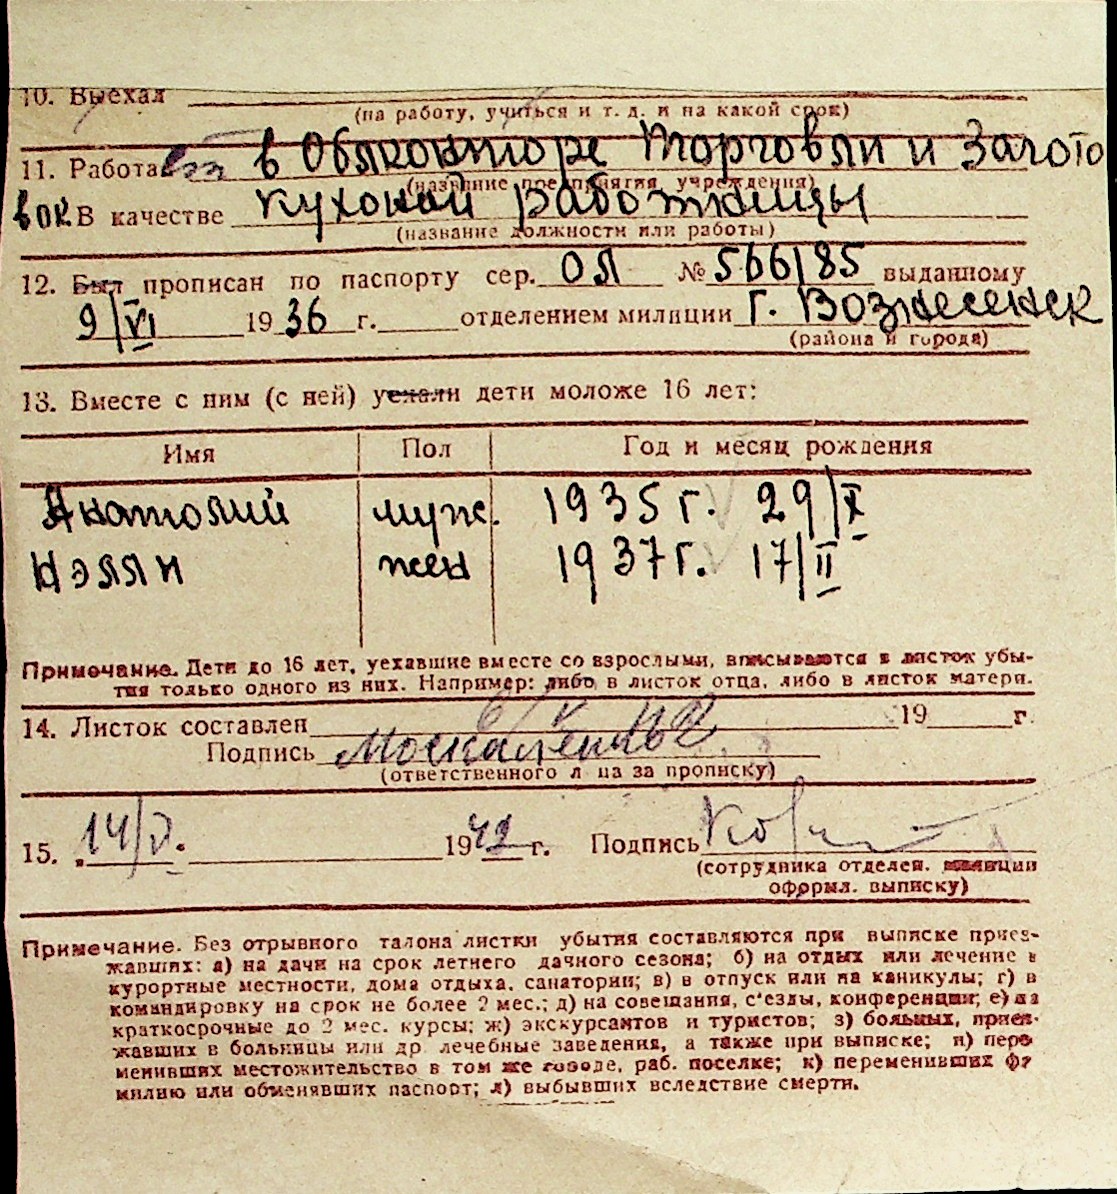 10. Выехал
(на работу, учиться и т. д. и на какой срок)
11. Работает в Облконторе Торговли и Загото
(название предприятия, учреждения)
вок В качестве кухоной работницы
(название должности или работы)
12. Был прописан по паспорту сер. ОЛ № 566185 выданному
9/VI 1936 г. отделением милиции г. Вознесенск
(района и города)
13. Вместе с ним (с ней) уехали дети моложе 16 лет:
Имя Пол Год и месяц рождения
Анатолий муж. 1935 г. 29/X
Нэлли жен 1937 г. 17/II
Примечание. Дети до 16 лет, уехавшие вместе со взрослыми, вписываются в листок убы-
тия только одного из них. Например: либо в листок отца, либо в листок матери.
14. Листок составлен 19 г.
Подпись
(ответственного лица за прописку)
15. „14/V. 1942 г. Подпись
(сотрудника отделен. милиции
оформл. выписку)
Примечание. Без отрывного талона листки убытия составляются при выписке приез-
жавших: а) на дачи на срок летнего дачного сезона; б) на отдых или лечение в
курортные местности, дома отдыха, санатории; в) в отпуск или на каникулы; г) в
командировку на срок не более 2 мес.; д) на совещания, с'езды, конференции; е) на
краткосрочные до 2 мес. курсы; ж) экскурсантов и туристов; з) больных, приез-
жавших в больницы или др лечебные заведения, а также при выписке; и) пере
менивших местожительство в том же городе, раб. поселке; к) переменивших фа
милию или обменявших паспорт; л) выбывших вследствие смерти.